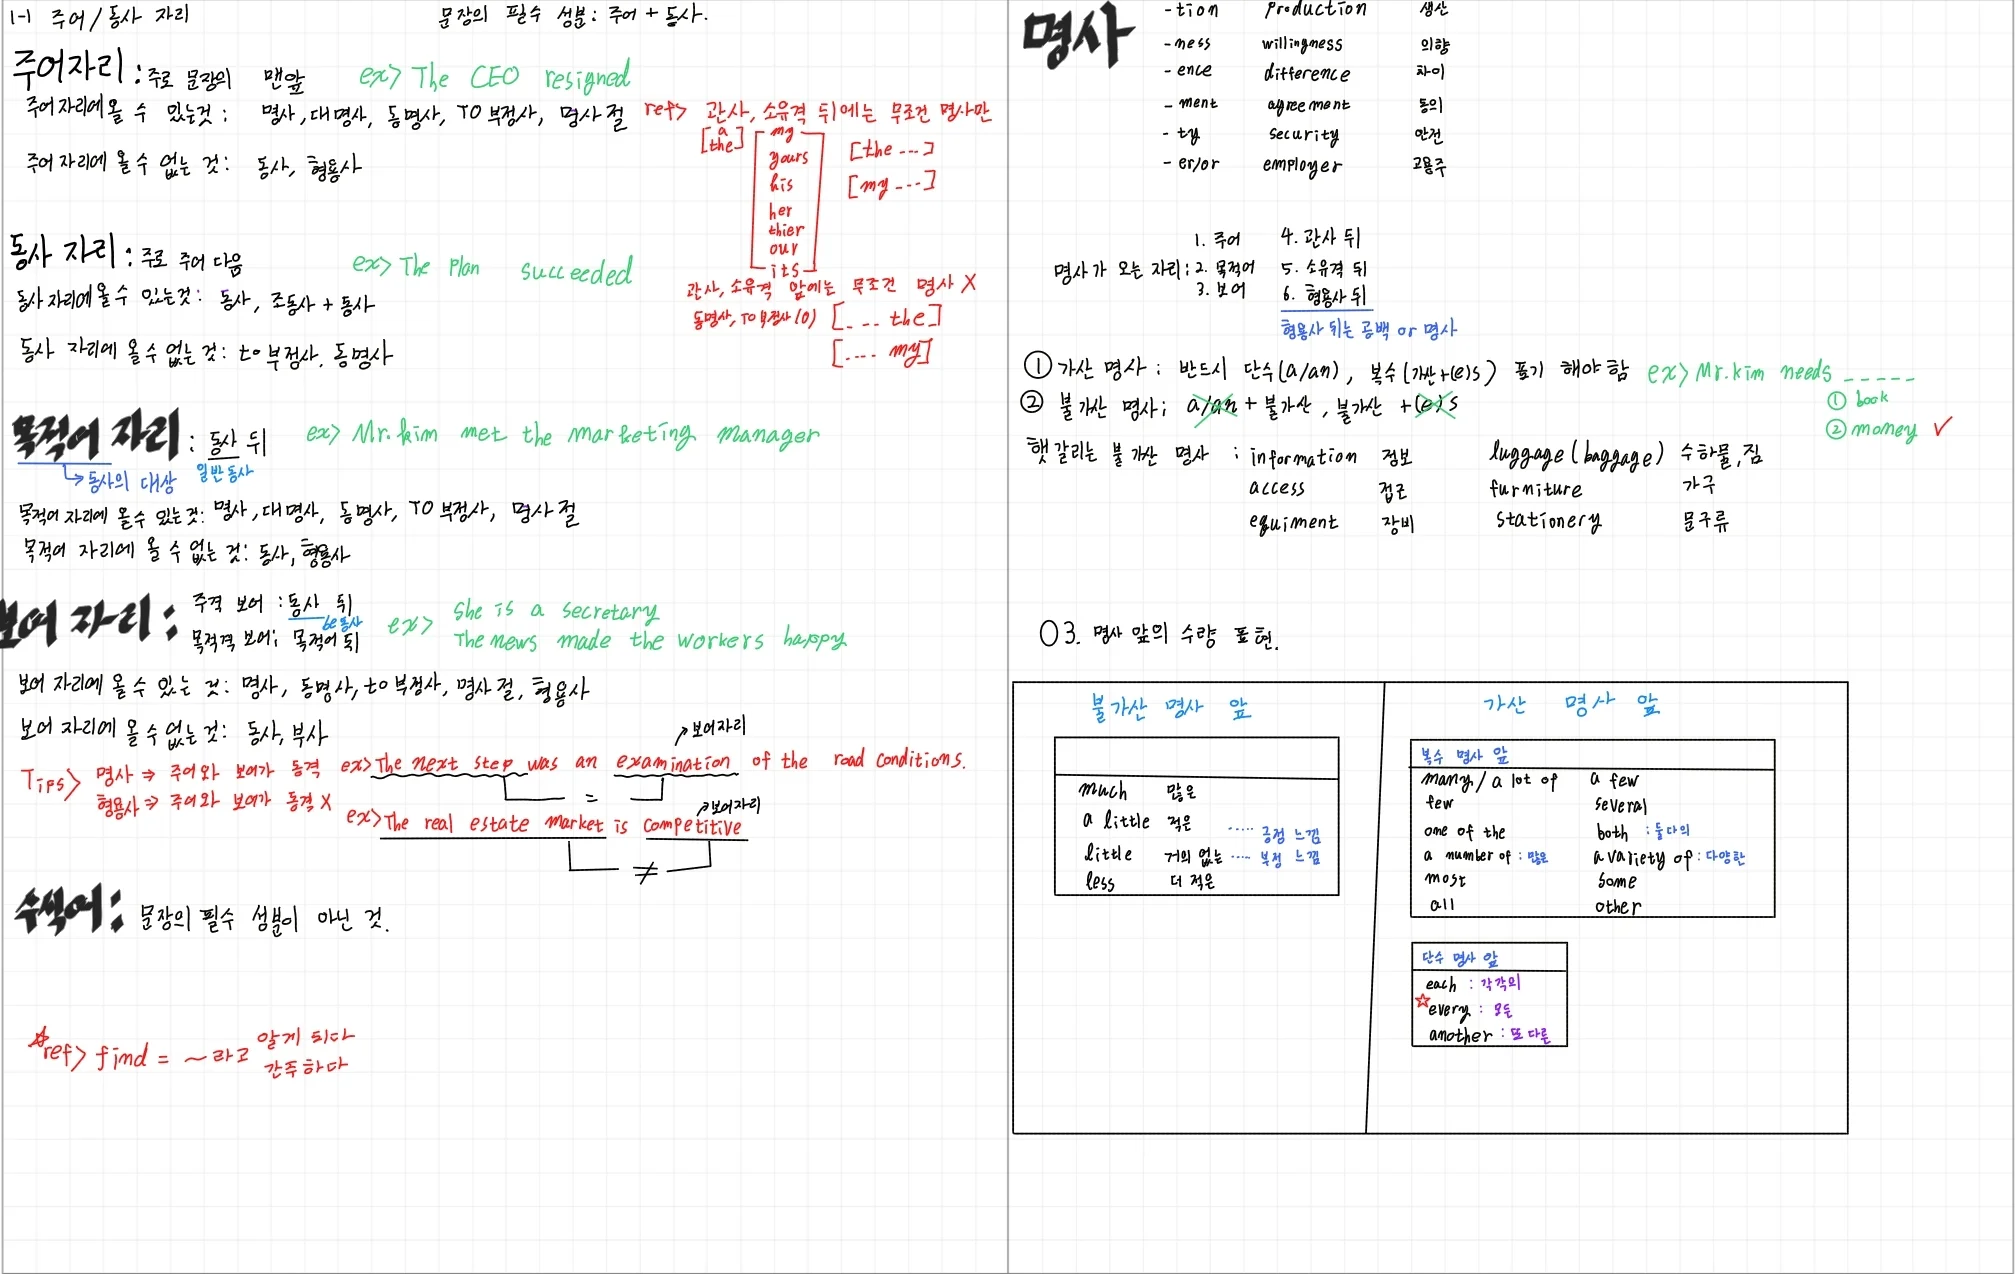 1-1 주어/동사 자리 문장의 필수 성분: 주어 + 동사.
주어자리 : 주로 문장의 맨앞 ex> The CEO resigned
주어 자리에 올 수 있는것 : 명사, 대명사, 동명사, TO 부정사, 명사절
주어 자리에 올 수 없는 것: 동사, 형용사
ref> 관사, 소유격 뒤에는 무조건 명사만
[a the]
my
yours
his
her
thier
our
its
[the ...]
[my ...]
관사, 소유격 앞에는 무조건 명사 X
동명사, TO 부정사(O) [... the]
[.... my]
동사 자리 : 주로 주어 다음 ex> The Plan succeeded
동사 자리에 올 수 있는것: 동사, 조동사 + 동사
동사 자리에 올 수 없는 것: to 부정사. 동명사
목적어 자리 : 동사 뒤 ex> Mr.kim met the marketing manager
↳ 동사의 대상 일반동사
목적어 자리에 올 수 있는 것: 명사, 대명사, 동명사, TO 부정사, 명사절
목적어 자리에 올 수 없는 것: 동사, 형용사
보어 자리 :
주격 보어 : 동사 뒤
be동사
목적격 보어; 목적어 뒤
ex> she is a secretary
The news made the workers happy
보어 자리에 올 수 있는 것: 명사, 동명사, to 부정사, 명사절, 형용사
보어 자리에 올 수 없는 것: 동사, 부사
보어자리
Tips> 명사 ⇒ 주어와 보어가 동격 ex> The next step was an examination of the road conditions.
=
형용사 ⇒ 주어와 보어가 동격 X
보어자리
ex> The real estate market is competitive
≠
수식어 : 문장의 필수 성분이 아닌 것.
☆ref> find = ~라고 알게 되다
간주하다
명사
-tion production 생산
-ness willingness 의향
-ence difference 차이
-ment agreement 동의
-ty security 안전
-er/or employer 고용주
명사가 오는 자리 :
1. 주어 4. 관사 뒤
2. 목적어 5. 소유격 뒤
3. 보어 6. 형용사 뒤
형용사 뒤는 공백 or 명사
① 가산 명사 : 반드시 단수(a/an), 복수(가산+(e)s) 표기 해야 함 ex> Mr.kim needs _____
① book
② money ✓
② 불가산 명사; a/an + 불가산, 불가산 + (e)s
햇갈리는 불가산 명사 : information 정보 luggage(baggage) 수하물, 짐
access 접근 furniture 가구
equiment 장비 stationery 문구류
03. 명사 앞의 수량 표현.
불가산 명사 앞
much 많은
a little 적은 ..... 긍정 느낌
little 거의 없는 .... 부정 느낌
less 더 적은
가산 명사 앞
복수 명사 앞
many / a lot of a few
few several
one of the both : 둘다의
a number of : 많은 a variety of : 다양한
most some
all other
단수 명사 앞
each : 각각의
☆every : 모든
another : 또 다른